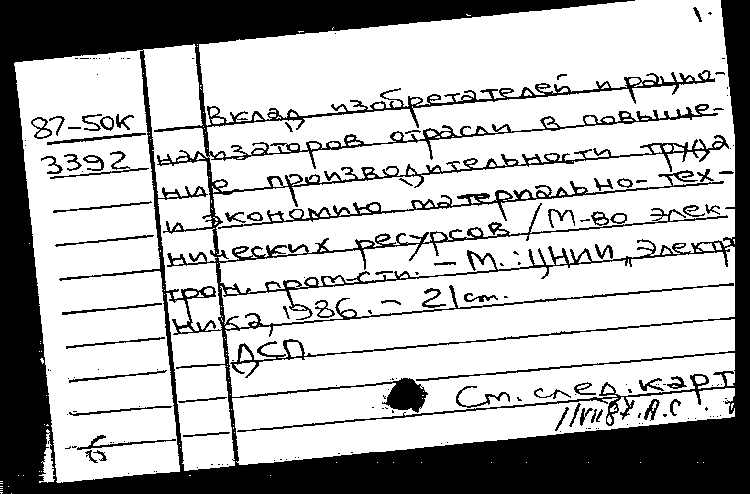 1.
87-50К Вклад изобретателей и рацио-
3392 нализаторов отрасли в повыше-
ние производительности труда
и экономию материально-тех-
нических ресурсов / М-во элек-
трон. пром-сти. - М.: ЦНИИ "Электро-
ника, 1986. - 21 cm.
ДСП.
Cm. след. карт
11VII87. А.С.
б